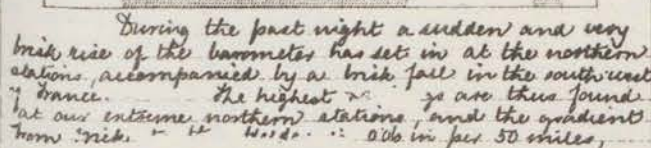 During the past night a sudden and very
brisk rise of the barometer has set in at the northern
stations, accompanied by a brisk fall in the south west
of France. The highest are thus found
at our extreme northern stations, and the gradient
from in per 50 miles,